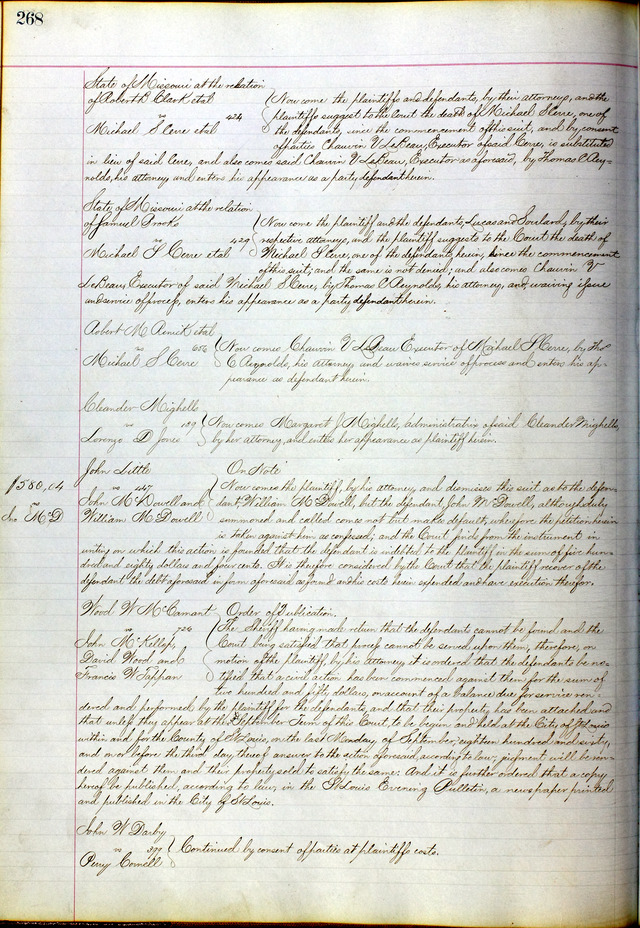 268
State of Missouri at the relation
of Robert P. Clark etal
vs 424
Michael S Cerre etal
Now come the plaintiffs and defendants, by their attorneys, and the
plaintiffs suggest to the Court the death of Michael S Cerre, one of
the defendants, since the commencement of this suit, and by consent
of parties Chauvin V LeBeau, Executor of said Cerre, is substituted
in lieu of said Cerre, and also comes said Chauvin V LeBeau, Executor as aforesaid, by Thomas C Rey-
nolds, his attorney and enters his appearance as a party defendant herein.
State of Missouri at the relation
of Samuel Brooks
vs 429
Michael S Cerre etal
Now come the plaintiff and the defendants, Lucas and Soulard, by their
respective attorneys, and the plaintiff suggests to the Court the death of
Michael S Cerre, one of the defendants herein, since the commencement
of this suit; and the same is not denied; and also comes Chauvin V
LeBeau, Executor of said Michael S Cerre, by Thomas C Reynolds, his attorney, and waiving issue
and service of process, enters his appearance as a party defendant herein.
Robert M Renick etal
vs 656
Michael S Cerre
Now comes Chauvin V LeBeau Executor of Michael S Cerre, by Tho
C Reynolds, his attorney and waives service of process and enters his ap-
pearance as defendant herein.
Cleander Mighells
vs 109
Lorenzo D Jones
Now comes Margaret J Mighells, administratrix of said Cleander Mighells,
by her attorney, and enters her appearance as plaintiff herein.
John Little
vs 447
John McDowell and
William McDowell
$580,04
Jno McD
On Note
Now comes the plaintiff, by his attorney, and dismisses this suit as to the defen-
dant, William McDowell, but the defendant, John McDowell, although duly
summoned and called comes not but makes default, wherefore the petition herein
is taken against him as confessed; and the Court finds from the instrument in
writing on which this action is founded that the defendant is indebted to the plaintiff in the sum of five hun-
dred and eighty dollars and four cents. It is therefore considered by the Court that the plaintiff recover of the
defendant the debt aforesaid in form aforesaid as found and his costs herein expended and have execution therefor.
Wood W McCamant
vs 724
John McKillop,
David Wood and
Francis W Tappan
Order of Publication.
The Sheriff having made return that the defendants cannot be found and the
Court being satisfied that process cannot be served upon them, therefore, on
motion of the plaintiff by his attorney, it is ordered that the defendants be no-
tified that a civil action has been commenced against them for the sum of
two hundred and fifty dollars, on account of a balance due for service ren-
dered and performed by the plaintiff for the defendants, and that their property has been attached and
that unless they appear at the September Term of this Court, to be begun and held at the City of St Louis
within and for the County of St Louis, on the last Monday of September, eighteen hundred and sixty,
and on or before the third day thereof answer to the action aforesaid, according to law; judgment will be ren-
dered against them and their property sold to satisfy the same. And it is further ordered that a copy
hereof be published, according to law, in the St Louis Evening Bulletin, a newspaper printed
and published in the City of St Louis.
John W Darby
vs 399
Perry Cornell
Continued by consent of parties at plaintiffs costs.